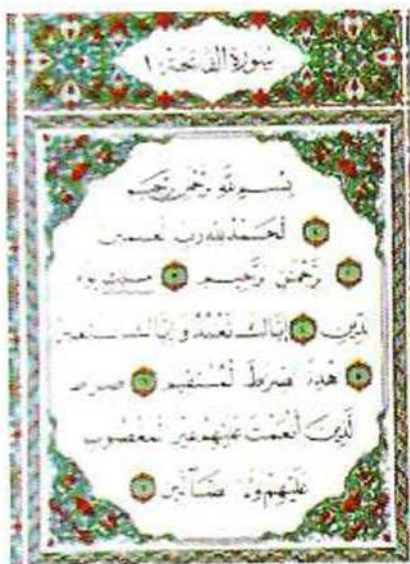 سورة الفاتحة ١
بسم الله الرحمن الرحيم
الحمد لله رب العالمين
الرحمن الرحيم ملك يوم
الدين إياك نعبد وإياك نستعين
اهدنا الصراط المستقيم صراط
الذين أنعمت عليهم غير المغضوب
عليهم ولا الضآلين